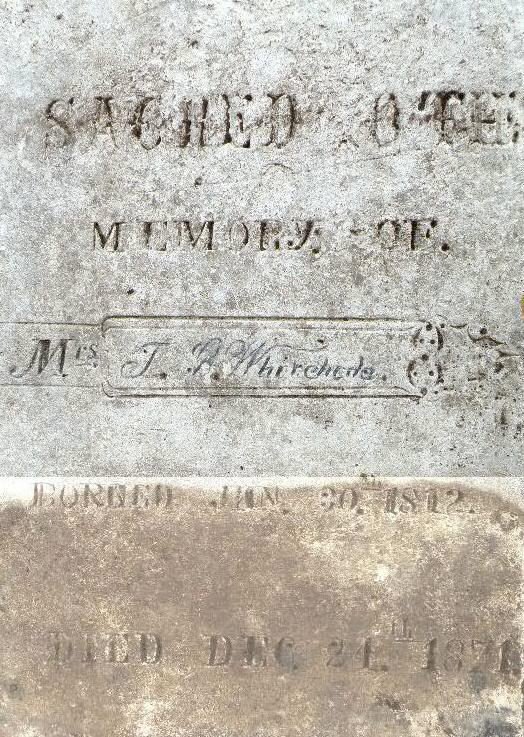 SACRED TO THE
MEMORY OF.
Mrs T.
JAN. 30.th 1812.
DIED DEC 24.th 1871